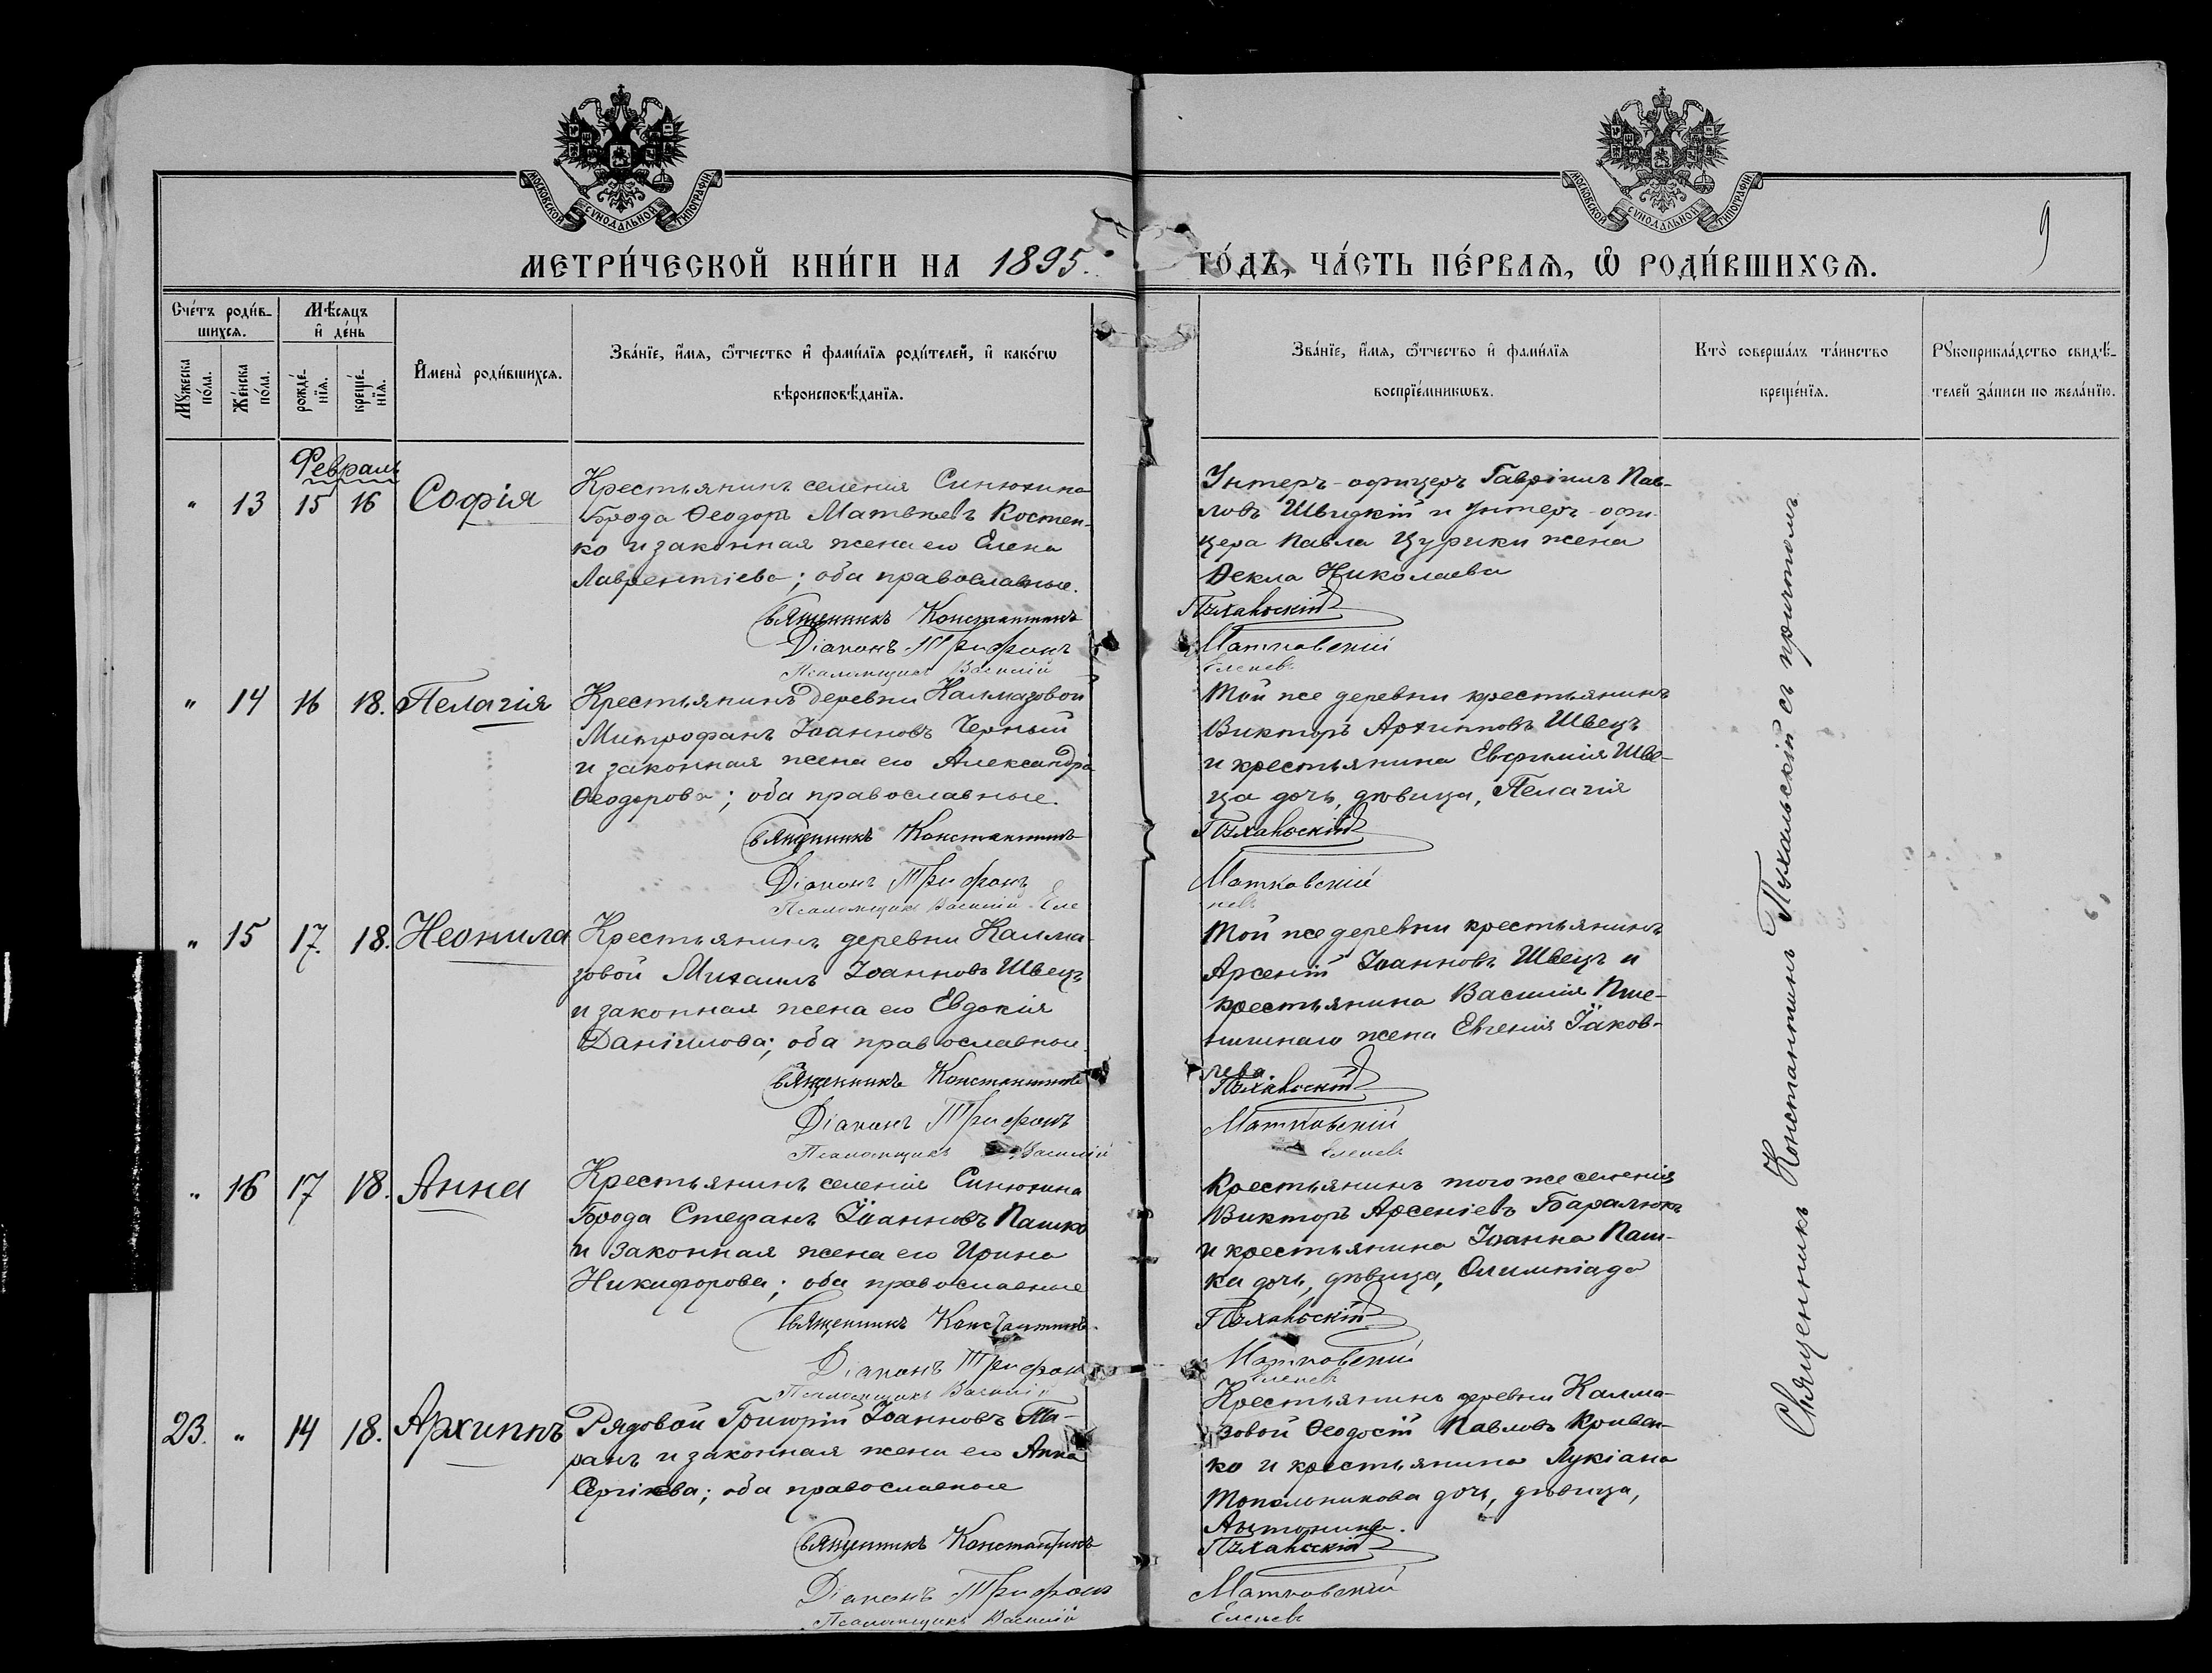 МОСКОВСКОЙ СѴНОДАЛЬНОЙ ТИПОГРАФІИ
МОСКОВСКОЙ СѴНОДАЛЬНОЙ ТИПОГРАФІИ
9
МЕТРИ́ЧЕСКОЙ КНИ́ГИ НА 1895.
ГО́ДЪ, ЧА́СТЬ ПЕ́РВАѦ, Ѽ РОДИ́ВШИХСѦ.
Сче́тъ роди́в-
шихсѧ.
Мꙋжеска по́ла.
Же́нска по́ла.
Мѣ́сѧцъ
и҆ де́нь
рожде́-
нїѧ.
креще́-
нїѧ.
И҆мена̀ роди́вшихсѧ.
Зва́нїе, и҆́мѧ, ѻ҆́тчество и҆ фами́лїѧ роди́телей, и҆ како́гѡ
вѣроисповѣ́данїѧ.
Зва́нїе, и҆́мѧ, ѻ҆́тчество и҆ фами́лїѧ
воспрїе́мникѡвъ.
Кто̀ соверша́лъ та́инство
креще́нїѧ.
Рꙋкоприкла́дство свидѣ́-
телей за́писи по жела́нїю.
Февраль
" 13 15 16 Софія
Крестьянинъ селенія Синюхина
Брода Ѳеодоръ Матвѣевъ Костен-
ко и законная жена его Елена
Лаврентіева; оба православные.
Священникъ Константинъ
Діаконъ Трифонъ
Псаломщикъ Василій
Унтеръ-офицеръ Гавріилъ Пав-
ловъ Швидкій и унтеръ-офи-
цера Павла Цурики жена
Ѳекла Николаева
Пухальскій
Матковскій
Еленевъ
" 14 16 18. Пелагія
Крестьянинъ деревни Калмазовой
Митрофанъ Іоанновъ Черный
и законная жена его Александра
Ѳеодорова; оба православные.
Священникъ Константинъ
Діаконъ Трифонъ
Псаломщикъ Василій Еле
Той же деревни крестьянинъ
Викторъ Архиповъ Швецъ
и крестьянина Евфимія Шве-
ца дочь, дѣвица, Пелагія
Пухальскій
Матковскій
невъ
" 15 17. 18. Неонила
Крестьянинъ деревни Калма-
зовой Михаилъ Іоанновъ Швецъ
и законная жена его Евдокія
Даніилова; оба православные
Священникъ Константинъ
Діаконъ Трифонъ
Псаломщикъ Василій
Той же деревни крестьянинъ
Арсеній Іоанновъ Швецъ и
крестьянина Василія Пше-
ничнаго жена Евгенія Іаков-
лева.
Пухальскій
Матковскій
Еленевъ
" 16 17 18. Анна
Крестьянинъ селенія Синюхина
Брода Стефанъ Іоанновъ Пашко
и законная жена его Ирина
Никифорова; оба православные
Священникъ Константинъ.
Діаконъ Трифонъ
Псаломщикъ Василій
Крестьянинъ того же селенія
Викторъ Арсеніевъ Баралюкъ
и крестьянина Іоанна Паш-
ка дочь, дѣвица, Олимпіада
Пухальскій
Матковскій
Еленевъ
23. " 14 18. Архиппъ
Рядовой Григорій Іоанновъ Та-
ранъ и законная жена его Анна
Сергіева; оба православные
Священникъ Константинъ
Діаконъ Трифонъ
Псаломщикъ Василій
Крестьянинъ деревни Калма-
зовой Ѳеодосій Павловъ Криван-
ко и крестьянина Лукіана
Топольникова дочь, дѣвица,
Антонина.
Пухальскій
Матковскій
Еленевъ
Священникъ Константинъ Пухальскій съ причтомъ